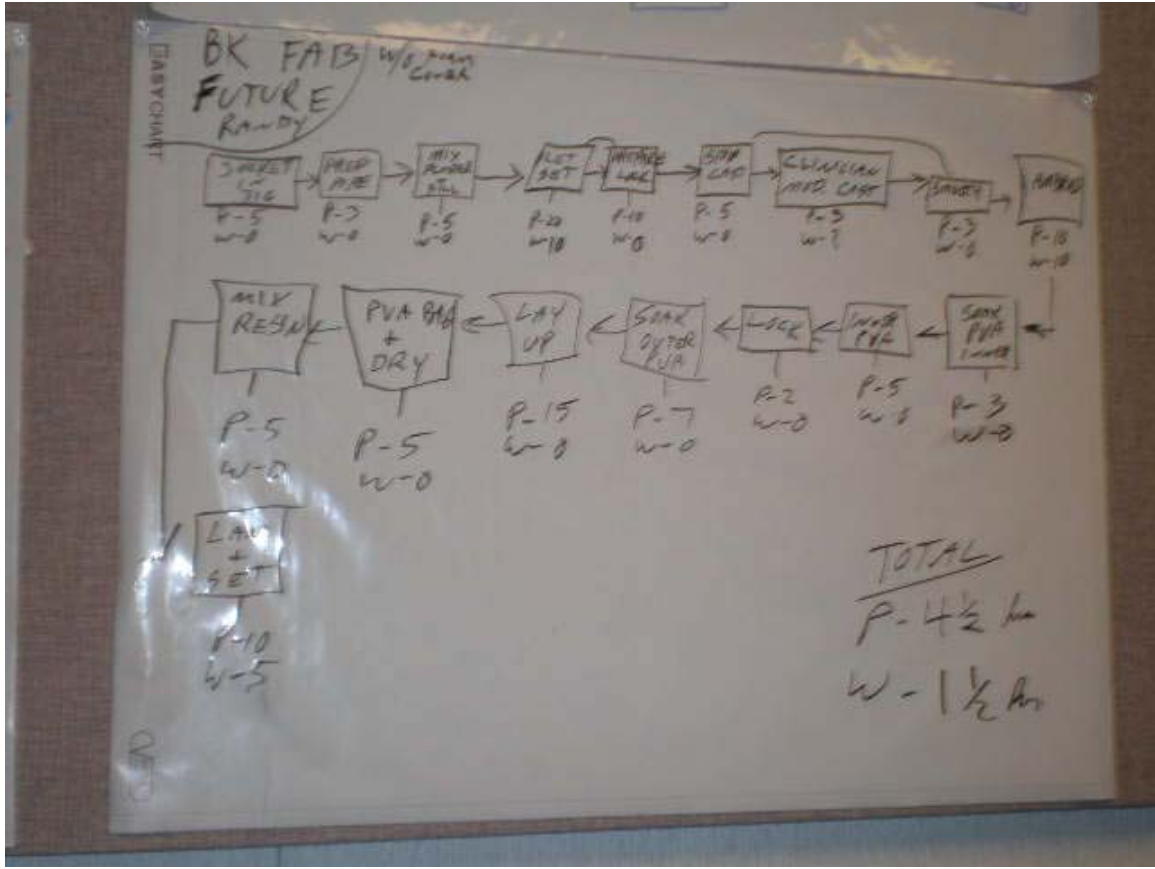 BK FAB
W/O FOAM
COVER
FUTURE
RANDY
EASYCHART
SOCKET
IN
JIG
P-5
W-0
PREP
PIPE
P-3
W-0
MIX
P-5
W-0
LET
SET
P-20
W-10
PREPARE
LINK
P-10
W-0
P-5
W-0
CLINICIAN
MOD. CAST
W-?
SMOOTH
P-3
W-0
P-10
W-10
SOAK
PVA
INNER
P-3
W-0
INNER
PVA
P-5
W-0
LOCK
P-2
W-0
SOAK
OUTER
PVA
P-7
W-0
LAY
UP
P-15
W-0
PVA BAG
+
DRY
P-5
W-0
MIX
RESIN
P-5
W-0
LAM
+
SET
P-10
W-5
TOTAL
P-4½ hr
W-1½ hr